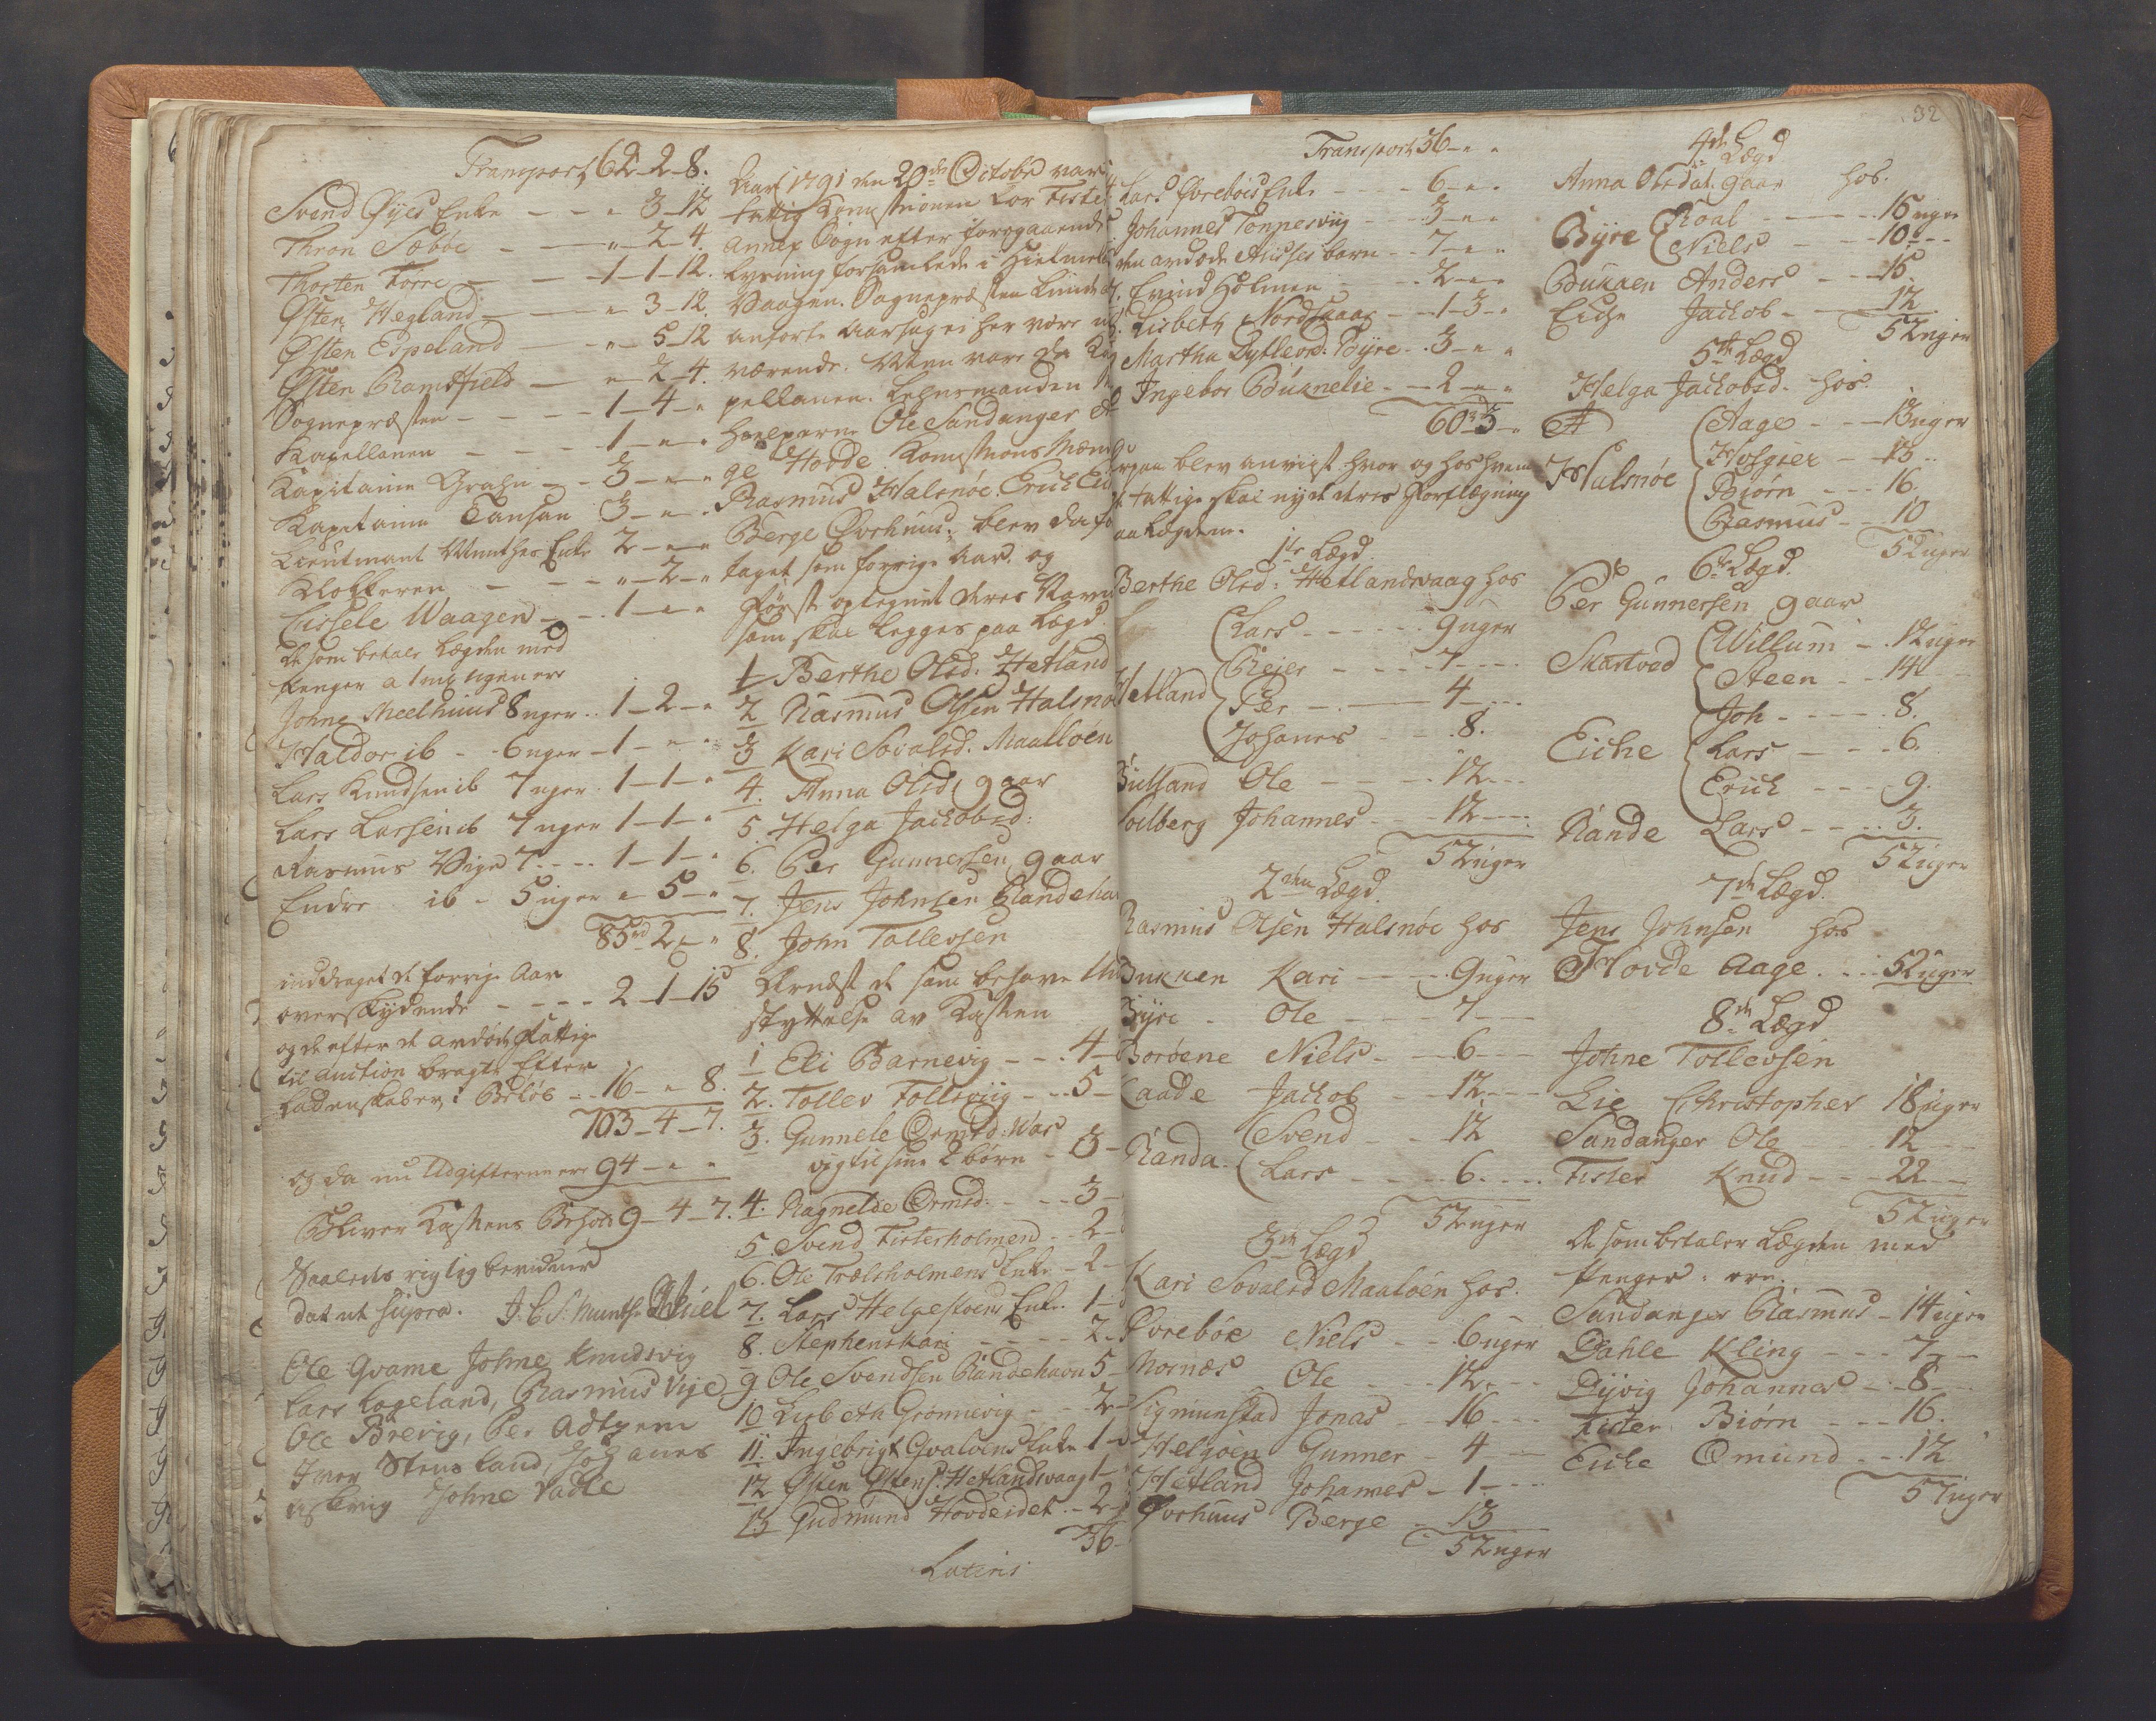 Transport 62-2-8.
Svend Øyes Enke - - - " 3-12
Thron Sæbøe - - - " -2-4.
Thorsten Førre - - 1-1-12.
Østen Hegland - - " 3-12.
Østen Espeland - - " -5-12
Østen Ramsfield - " -2-4.
Sognepræsten - - - - 1-4-"
Kapellanen - - - - 1-"-"
Kapitaine Grahn - - 3-"-"
Kapitaine 3-"-"
Lieutnant Munthes Enke 2-"-"
Klokkeren - - - - "-2-"
Cissele Waagen - - 1-"-"
de som betale Lægden med
Penger
Johne Meelhuus 8 uger . . 1-2-"
Haldor ib - - 6 uger - 1-"-"
Lars Knudsen ib 7 uger . 1-1-"
Lars Larsen ib 7 uger 1-1-"
Rasmus Viga 7 . . . . 1-1-"
Endre ib - 5 uger " 5-"
85rd 2-"-"
inddraget de forrige Aar
overskydende - - - - 2-1-15
og de efter de avdøde Fattige
til Auction bragte Efter
ladenskaber, i Beløb - - 16-"-8.
103-4-7.
og da nu Udgifterne ere 94-"-"
Bliver Kassens Behold 9-4-7.
Saaledes rigtig
dat ut supra. J. C. S. Munthe
Ole Qvame Johne Knudsvig
Lars Logeland, Rasmus Vige
Ole Brevig, Per
Iver Stensland, Johanes
Johne Vadle
Aar 1791 den 20de Octobr var
Fattig Komissionen for Fister
Annex Sogn efter foregaaende
Lysning forsamlede i Hielmeland
Vaagen. Sognepræsten
anførte Aarsager her
værende. Men var da
pellanen. Lehnsmanden
Hovde. Komissions
Rasmus Halsnøe. Erich
Berge Øvrhuus, blev da fo
taget som forrige Aar. og
Først optegnet deres Navne
som skal legges paa Lægd
1 Berthe Olsd: Hetland
2 Rasmus Olsen Halsnøe
3 Kari Sovalsd. Maalløen
4. Anna Olsd. gaar
5 Helga Jachobsd:
6. Per Gunnersen gaar
7. Jens Johnsen Randeha
8. John Tollevsen
Dernæst de som behøve
styttelse av Kassen
1 Eli Barnevig - - - 4-
2. Tollev Tollsviig - - - 5-
3. Gunnele Ormsd: War
vig til sine 2 børn - 3-
4. Ragnelde Ormsd: - - - 3-
5. Svend Fisterholmen - - 2-
6. Ole Trælsholmens Enke - 2-
7. Lars Enke 1-
8. Stephens Kari - - - - 2-
9 Ole Svendsen Randehavn 5-
10 Lisbeth Grønnevig - - - 2-
11. Ingebrigt Enke 1-
12 Østen Østens. Hetlandsvaag 1-
13 Gudmund Hovdeidet - 2-
36-
Lateris
Transport 36-"-"
Lars Øvrebøes Enke - - - 6-"-
Johannes Tonnesviig - - - 3-"-"
den avdøde børn - - 7-"-"
Evind Holmen - - - - 2-"-"
Lisbeth - 1-3-"
Martha Byre - - 3-"-"
Ingebor Buknelie - - - 2-"-"
60-3-"
blev anvist hvor og hos hvem
Fattige skal nyde deres Forflægning
paa Lægden.
1te Lægd.
Berthe Olsd: Hetlandsvaag hos
Hetland
Lars - - - - - 9 uger
Reier - - - - 7 - - - -
Per - - - - 4 - - - -
Johanes - - - 8.
Ole - - - - 12 - - -
Solberg Johannes - - 12 - - -
52 uger
2den Lægd.
Rasmus Olsen Halsnøe hos
Bukken Kari - - - - 9 uger
Byre - Ole - - - - 7 - - -
Borøene Niels - - - 6 - - -
Jachob - - 12 - - -
Randa
Svend - - 12
Lars - - - - 6. - - -
52 uger
3de Lægd
Kari Sovalsd Maaløen hos.
Øvrebøe Niels - - 6 uger
Mosnæs Ole - - - 12 - - -
Sigmunstad Jonas - - 16 - - -
Helgøen Gunner - - 4 - -
Hetland Johannes - 1 - - -
Øvrhuus Berge - 13
52 uger
32
4de Lægd
Anna Olsdat. gaar hos.
Byre
Roal - - - - - 15 uger
Niels - - - 10 - - -
Bukken Anders - - - 15.
Eiche Jachob - - - 12
52 uger
5te Lægd
Helga Jachobsd. hos.
Aage - - - 13 uger
Halsnøe
- - 13 . .
Biørn - - - 16.
Rasmus - - 10
52 uger
6te Lægd.
Per Gunnersen gaar
Skartved
Willum - . 12 uger
Steen - - 14
Eiche
Joh - - - - . 8.
Lars - - - - 6.
Erich - - - 9.
Rande Lars - - . . 3.
52 uger
7de Lægd.
Jens Johnsen hos
Hovde Aage . . . . 52 uger
8de Lægd
Johne Tollevsen
Lie Christopher 18 uger
Sandanger Ole - - - 12 - - -
Fister Knud - - - 22 - -
52 uger
De som betaler Lægden med
Penger ere.
Sandanger Rasmus - 14 uger
Dahle Kling - - - 7 - - -
Dyvig Johannes - - 8 - - -
Fister Biørn - - - 16.
Eiche Omund - - - 12
57 uger